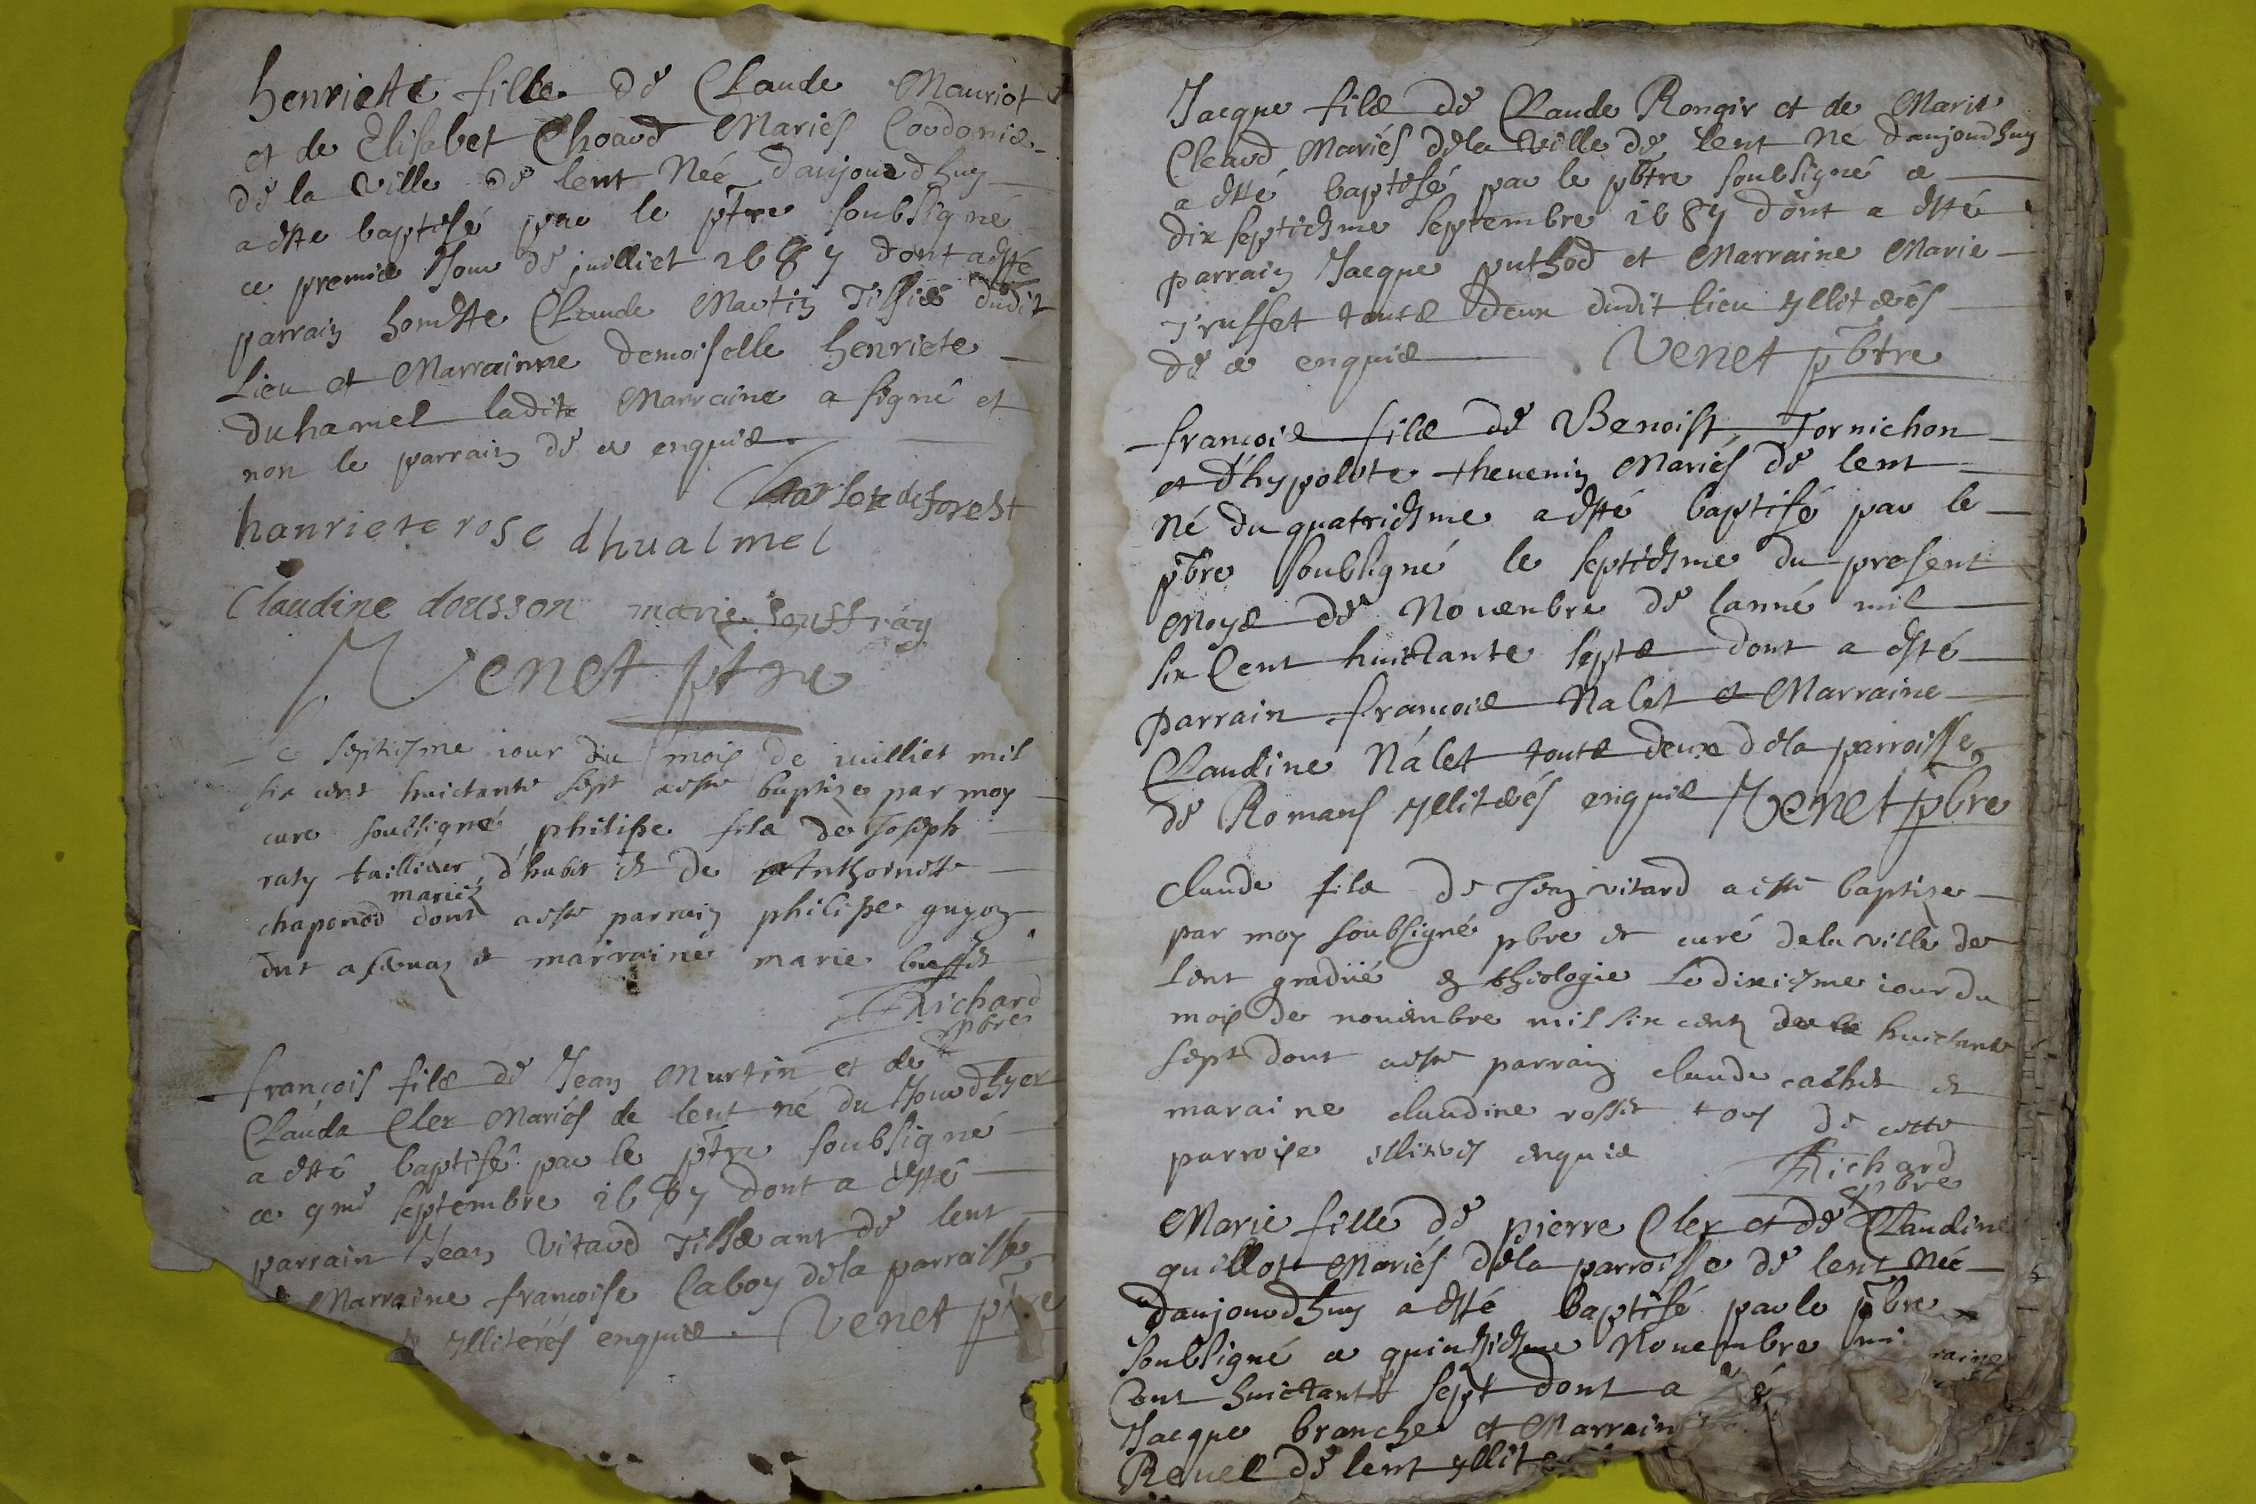 henriette fille de Claude Mauriot
et de Elisabet Choard Mariés Cordonie
de la ville de lent Née daujourdhuy
a este baptisé par le ptre soubsigné
ce premie Jour de juilliet 1687 dont a esté
parrain honeste Claude Martin Tissie dudit
Lieu et Marrainne demoiselle henriete
duhamel ladite Marraine a signé et
non le parrain de ce enquis
Charlote deforest
hanriete rose dhualmel
Claudine dousson marie
Venet ptre
Ce septiesme iour du mois de iuilliet mil
six cent huictante sept a esté baptize par moy
cure soubsigné philippe fils de Joseph
raty taillieur d'habit et de Anthoinette
mariez
chapenod dont a esté parrain philippe guyon
dit asseuaz et marraine marie buffet
Richard
pbre
françois fils de Jean Murtin et de
Clauda Cler Mariés de lent né du Jour dhyer
a esté baptisé par le ptre soubsigné
ce 9me septembre 1687 dont a esté
parrain Jean Vitard Tisserant de lent
Marraine francoise Caboy dela parroisse
ylliterés enquis Venet ptre
Jacque fils de Claude Rongir et de Marie
Cleard Mariés dela ville de lent né daujourdhuy
a esté baptisé par le pbtre soubsigné ce
dix septiesme septembre 1687 dont a esté
parrain Jacque puthod et Marraine Marie
Truffet touts deux dudit lieu ylliterés
de ce enquis Venet pbtre
françois fils de Benoist Tornichon
et d'hypolite thevenin Mariés de lent
né du quatriesme a esté baptisé par le
pbre soubsigné le septiesme du present
Moys de Novembre de lanné mil
six Cent huictante septs dont a esté
parrain francois Nalet et Marraine
Claudine Nalet touts deux dela parroisse
de Romans ylliterés enquis Venet pbre
claude fils de Jean vitard a esté baptize
par moy soubsigné pbre et curé dela ville de
lent gradué en theologie le dixiesme iour du
mois de novembre mil six cent huictante
sept dont a esté parrain claude cachet et
maraine claudine rosset tous de cette
parroise illiterés enquis
Richard
pbre
Marie fille de pierre Cler et de Claudine
guillot Mariés dela parroisse de lent Née
daujourdhuy a esté baptisé par le pbre
soubsigné ce quinziesme Novembre mi
Cent huictante sept dont a
Jacque branche et Marrain
Revel de lent yllite